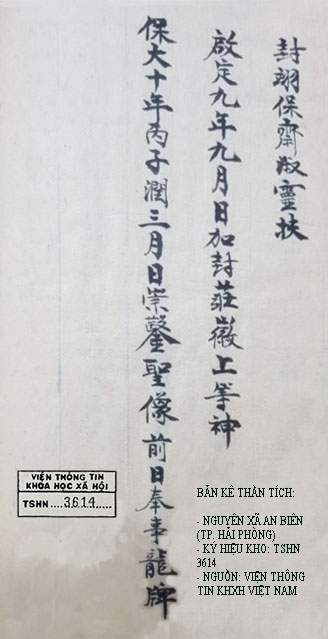 封翊保齋淑靈扶
啟定九年九月日加封莊徽上等神
保大十年丙子潤三月日崇鑿聖像前日奉事龍牌
VIỆN THÔNG TIN
KHOA HỌC XÃ HỘI
TSHN ....3614.....
BẢN KÊ THẦN TÍCH:
- NGUYÊN XÃ AN BIÊN
(TP. HẢI PHÒNG)
- KÝ HIỆU KHO: TSHN
3614
- NGUỒN: VIỆN THÔNG
TIN KHXH VIỆT NAM